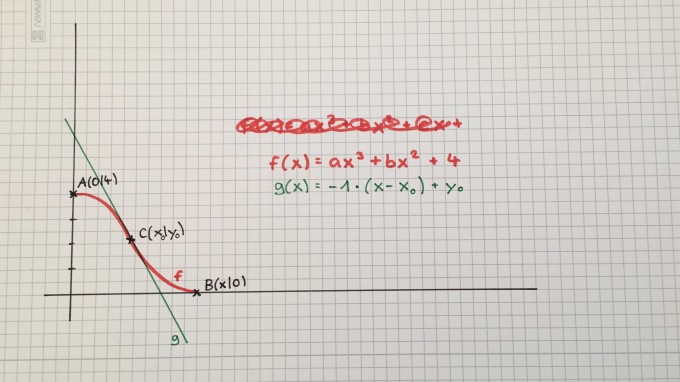 f(x) = ax³ + bx² + 4
g(x) = -1 · (x - x₀) + y₀
A(0|4)
C(x₀|y₀)
f
B(x|0)
g